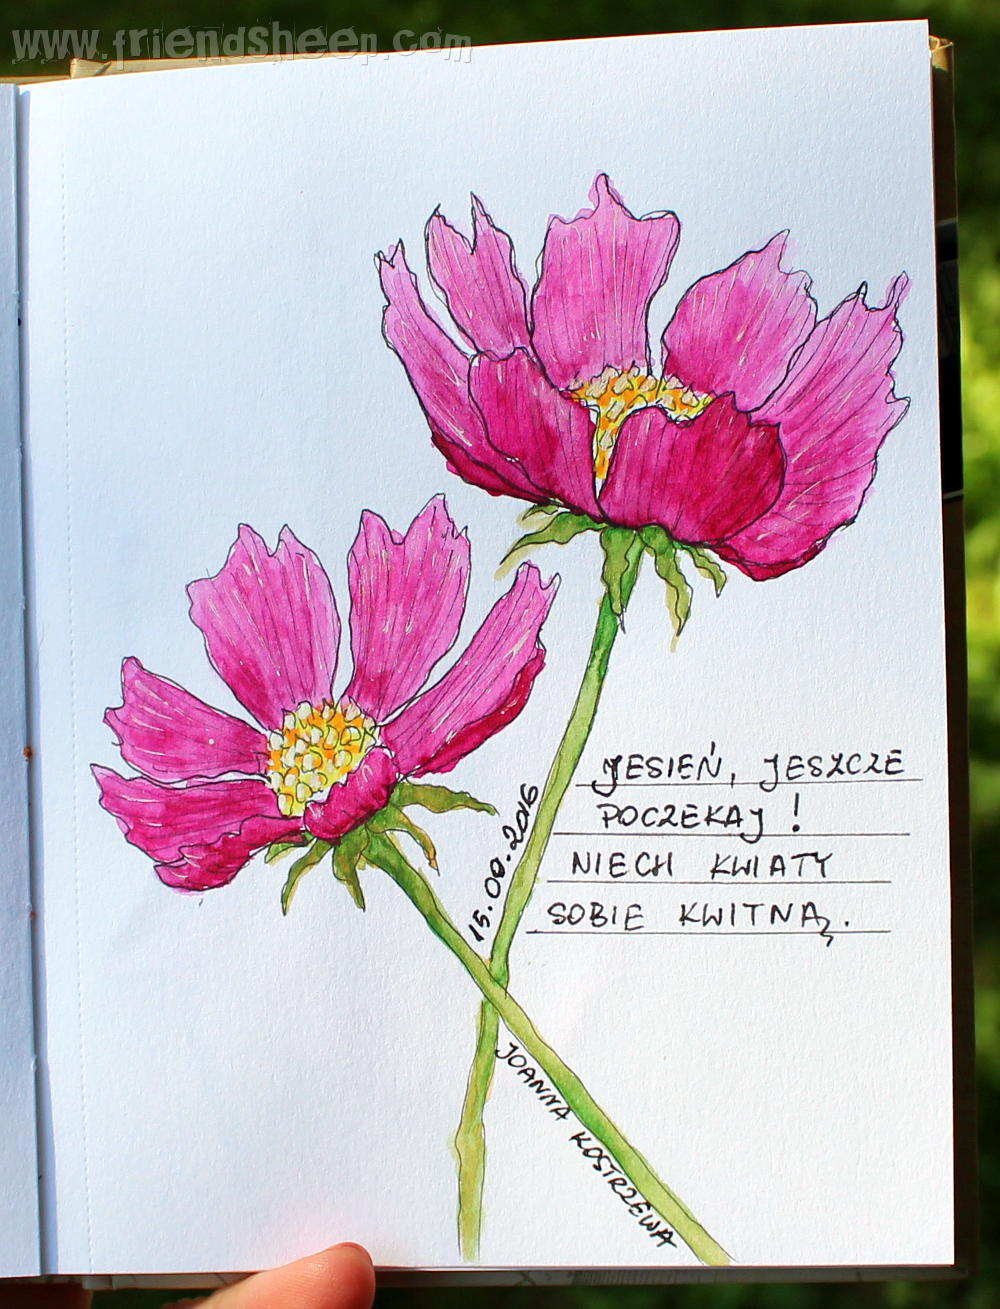 www.friendsheep.com
JESIEŃ, JESZCZE
POCZEKAJ !
NIECH KWIATY
SOBIE KWITNĄ.
15.09.2016
JOANNA KOSTRZEWA